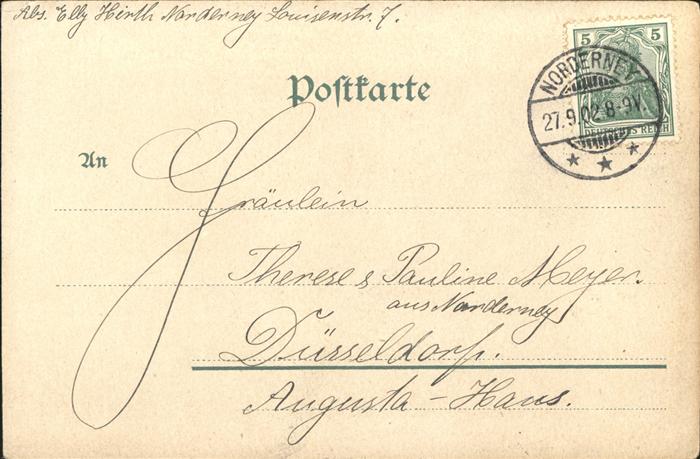 Abs. Elly Hirth Norderney Louisenstr. 7.
5 5
DEUTSCHES REICH
NORDERNEY
27.9.02 8-9V.
Postkarte
An
Fräulein
Therese & Pauline Meyer.
aus Norderney
Düsseldorf.
Augusta-Haus.